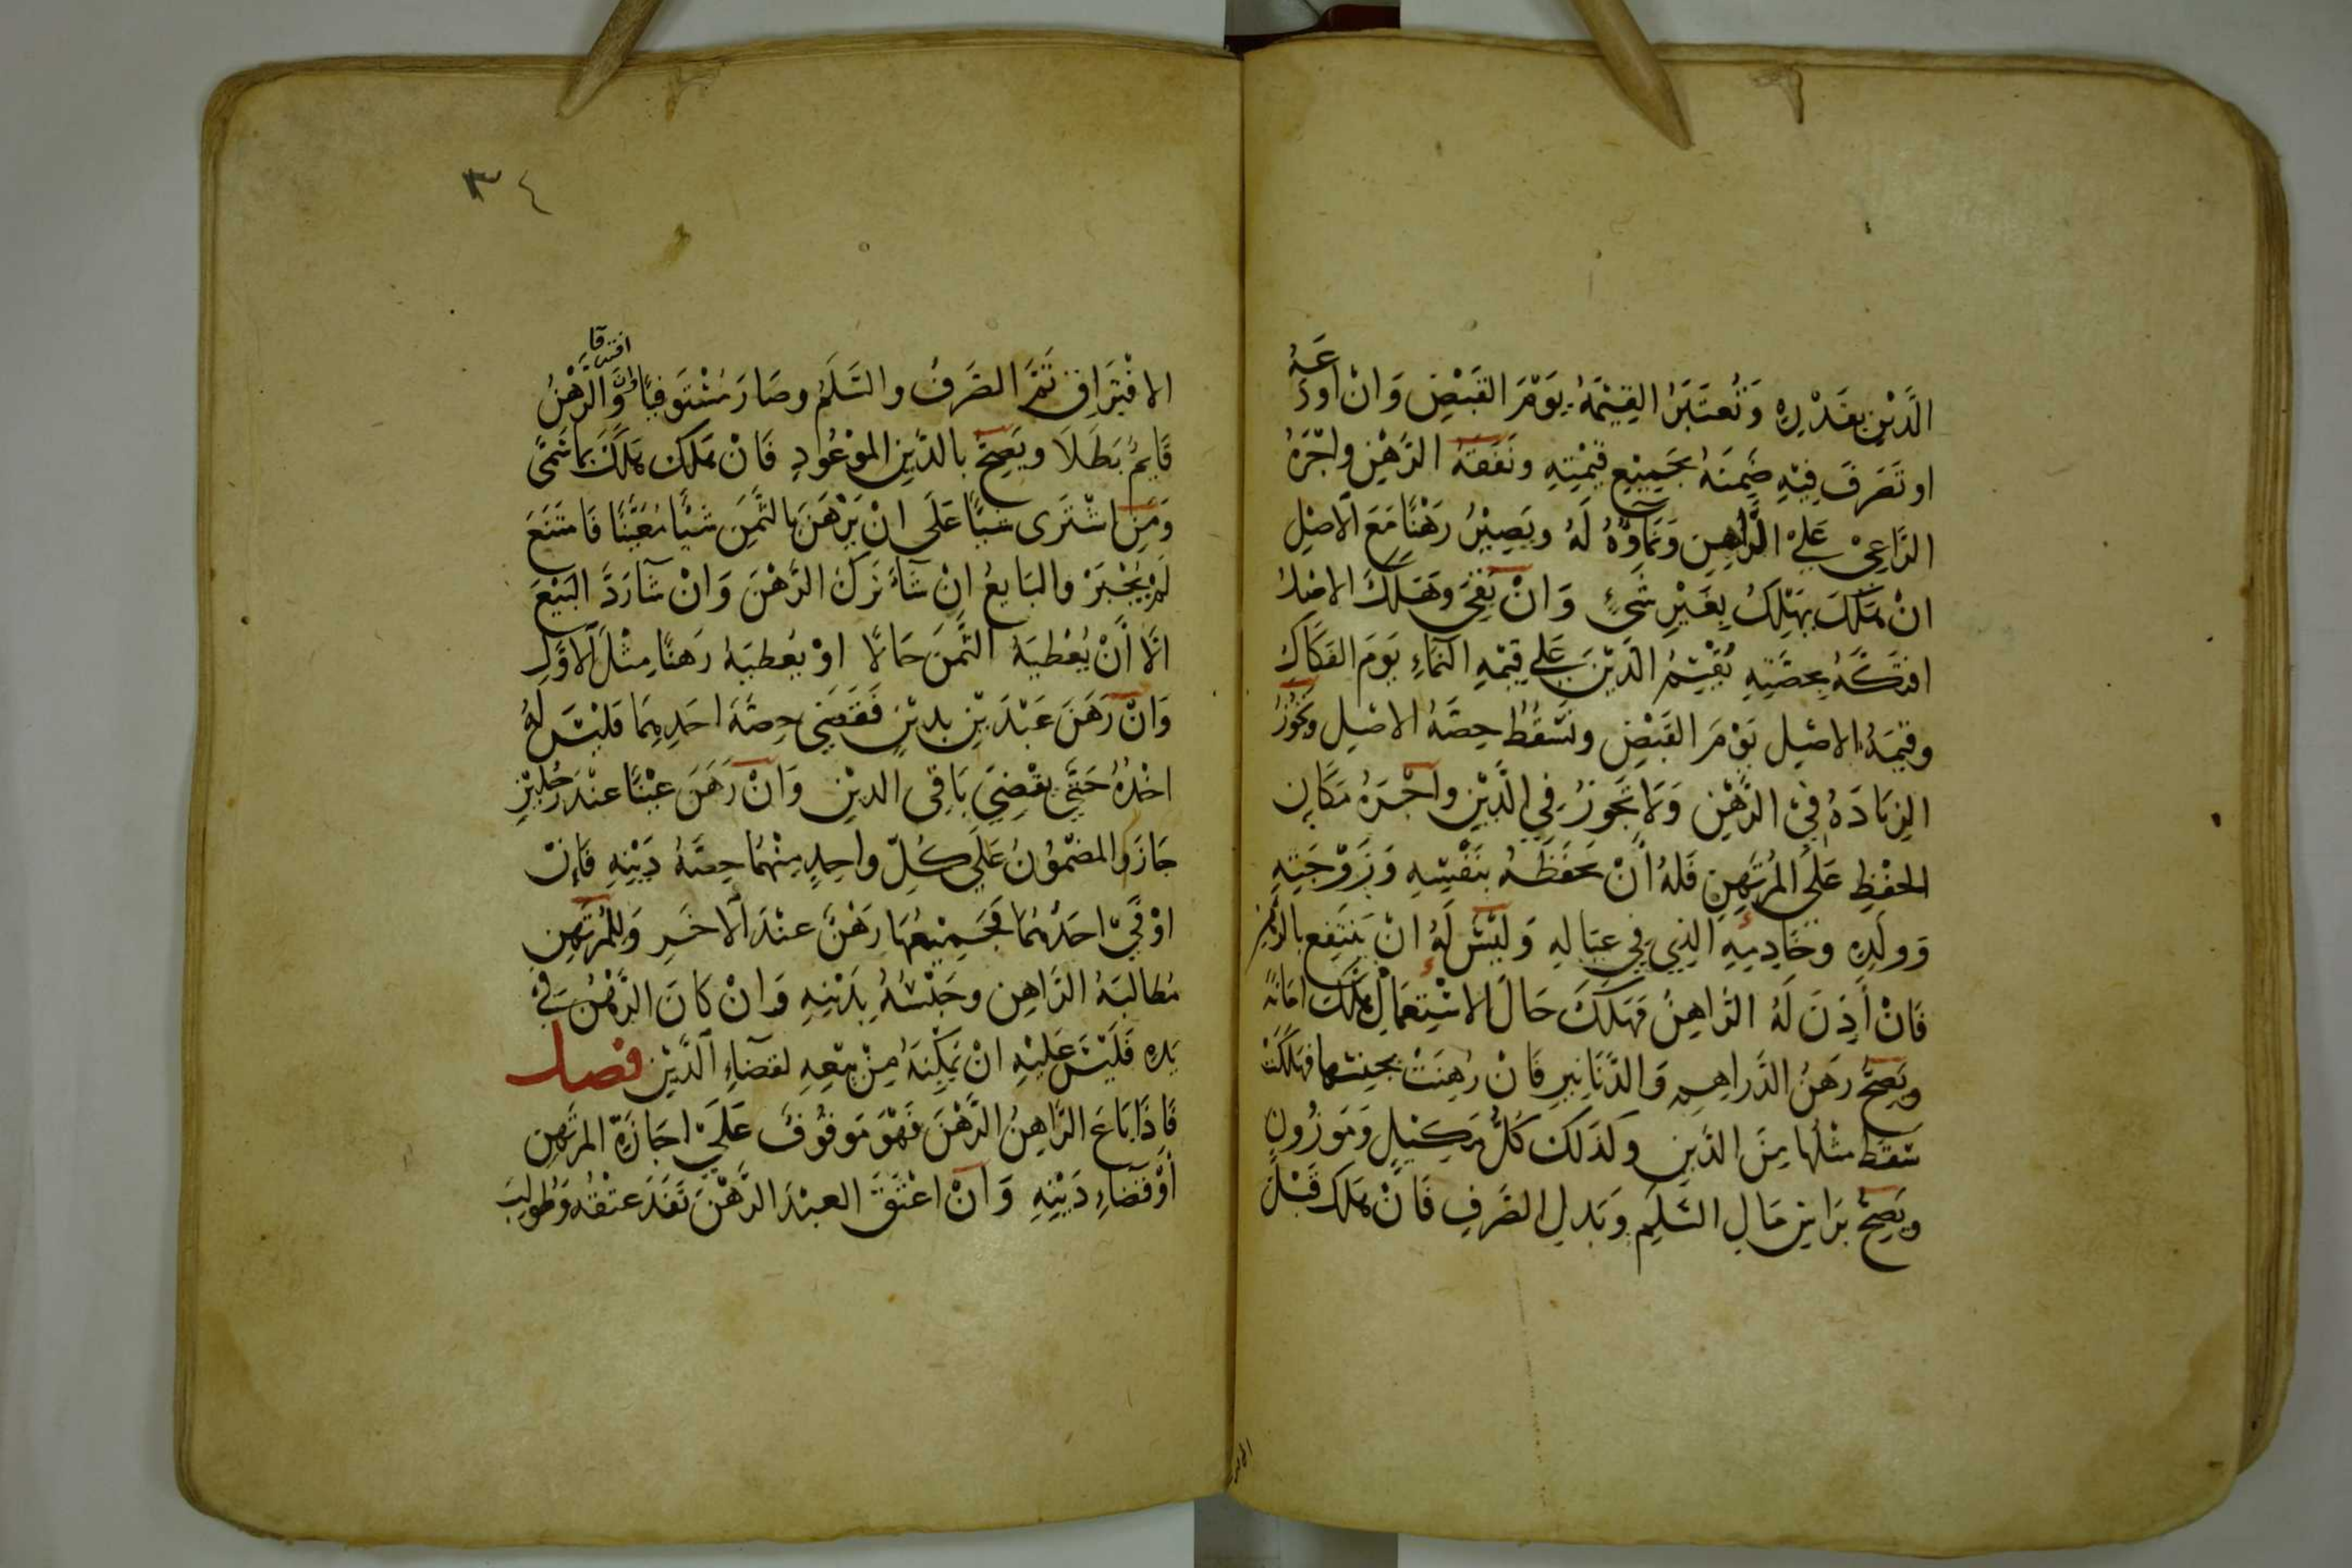 الدَّيْنِ بِقَدْرِهِ وَتُعتَبَرُ القِيْمَةُ يَوْمَ القَبْضِ وَانْ اودَعَهُ
او تَصَرفَ فِيْهِ ضَمِنَهُ بجَمِيْعِ قيْمَتِهِ ونَفَقَةُ الرَّهْنِ واجْرَةُ
الرَّاعِىْ عَلىْ الرَّاهِنِ وَنَمَاوُهُ لَهُ ويَصِيْرُ رَهْنًا مَعَ الاَصْلِ
انْ هَلَكَ يهْلِكُ بِغَيْرِ شَىْءٍ وَانْ بَقىَ وَهَلَكَ الاصْلُ
افتَكَّهُ بِحِصَّتِهِ يُقْسَمُ الدَّيْنُ عَلى قيْمَةِ النَّمَاءِ يَوْمَ الفَكَاكِ
وقيمَةُ الاصْلِ يَوْمَ القَبْضِ وتَسْقُطُ حِصَّةُ الاصْلِ وتَجُوْزُ
الزيَادَةُ فِىْ الرَّهْنِ وَلاَ تَجُوزُ فِى الدَّيْنِ واجْرَةُ مَكَانِ
الحفْظِ عَلَى المُرتَهِنِ فَلهُ أَنْ يحْفَظَهُ بنَفْسِهِ وَزَوْجَتِهِ
وَولَدِهِ وخَادِمِهِ الذِي فِي عيَالِهِ وَلَيْسَ لَهُ انْ يَنْتَفِع بالرَّهْنِ
فَانْ أَذِنَ لَهُ الرَّاهِنُ فَهَلَكَ حَالَ الاسْتِعْمَالِ هَلَكَ امَانَةً
ويَصِحُّ رَهنُ الدَّراهِمِ وَالدَّنَانِيرِ فَانْ رُهِنَتْ بجِنْسِهَا فهَلَكَتْ
سَقَطَ مثْلُهَا مِنَ الدَّيْنِ وكَذلكَ كُلُّ مَكِيْلٍ وَمَوزُونٍ
ويَصِحُّ بِرَاسِ مَالِ السَّلَمِ وبَدلِ الصَّرفِ فَانْ هَلَكَ قَبْلَ
٣٤
الافْتِرَاقِ تَمَّ الصَّرفُ والسَّلَمُ وصَارَ مُسْتَوفِيًا وَانْ افترقَا وَالرَّهْنُ
قَايمٌ بَطَلاَ ويَصِحُّ بالدَّيْنِ الموْعُودِ فَانْ هَلَكَ هَلَكَ بمَا سَمَّى
وَمَنِ اشْتَرَى شيْأً عَلَى انْ يَرْهَنَ بالثَّمَنِ شَيْأً مُعَيَّنًا فَامْتَنَعَ
لَمْ يُجْبَرْ والبَايعُ انْ شَاءَ تَرَكَ الرَّهْنَ وَانْ شَاءَ رَدَّ البَيْعَ
الَّا أَنْ يُعْطيَهُ الثَّمَنَ حَالًا اوْ يُعْطيَهُ رَهنًا مِثْلَ الاَوَّلِ
وَانْ رَهَنَ عَبْدَيْنِ بدِيْنٍ فَقَضَى حِصَّةَ احَدِهِمَا فَلَيْسَ لَهُ
اخْذُهُ حَتَّى يَقْضِيَ بَاقِى الدينِ وَانْ رَهَنَ عَيْنًا عنْدَ رَجُلَيْنِ
جَازَ والمضْمُوْنُ عَلَى كُلِّ واحِدٍ مِنْهُمَا حِصَّةُ دَيْنِهِ فَانْ
اوْفَىّ احَدَهُمَا فَجَمِيْعُهَا رَهْنٌ عنْدَ الاخَرِ وَلِلمُرتَهِنِ
مُطَالبَةُ الرَّاهِنِ وحَبْسُهُ بِدَيْنِهِ وَانْ كَانَ الرَّهْنُ فِىْ
يَدِهِ فَلَيْسَ عَلَيْهِ انْ يُمَكِّنَهُ مِنْ بَيْعِهِ لقَضَاءِ الدَّيْنِ فصل
فَاذَا بَاعَ الرَّاهِنُ الرَّهْنَ فَهْوَ مَوقُوْفٌ عَلَىْ اجَازَةِ المرتَهِنِ
أَوْ قَضَاءِ دَيْنِهِ وَانْ اعْتَقَ العبْدَ الرَّهْنَ نَفَذَ عتْقُهُ وَطُولِبَ